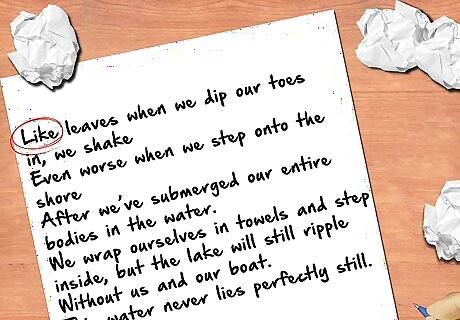 Like leaves when we dip our toes
in, we shake
Even worse when we step onto the
shore
After we've submerged our entire
bodies in the water.
We wrap ourselves in towels and step
inside, but the lake will still ripple
Without us and our boat.
water never lies perfectly still.